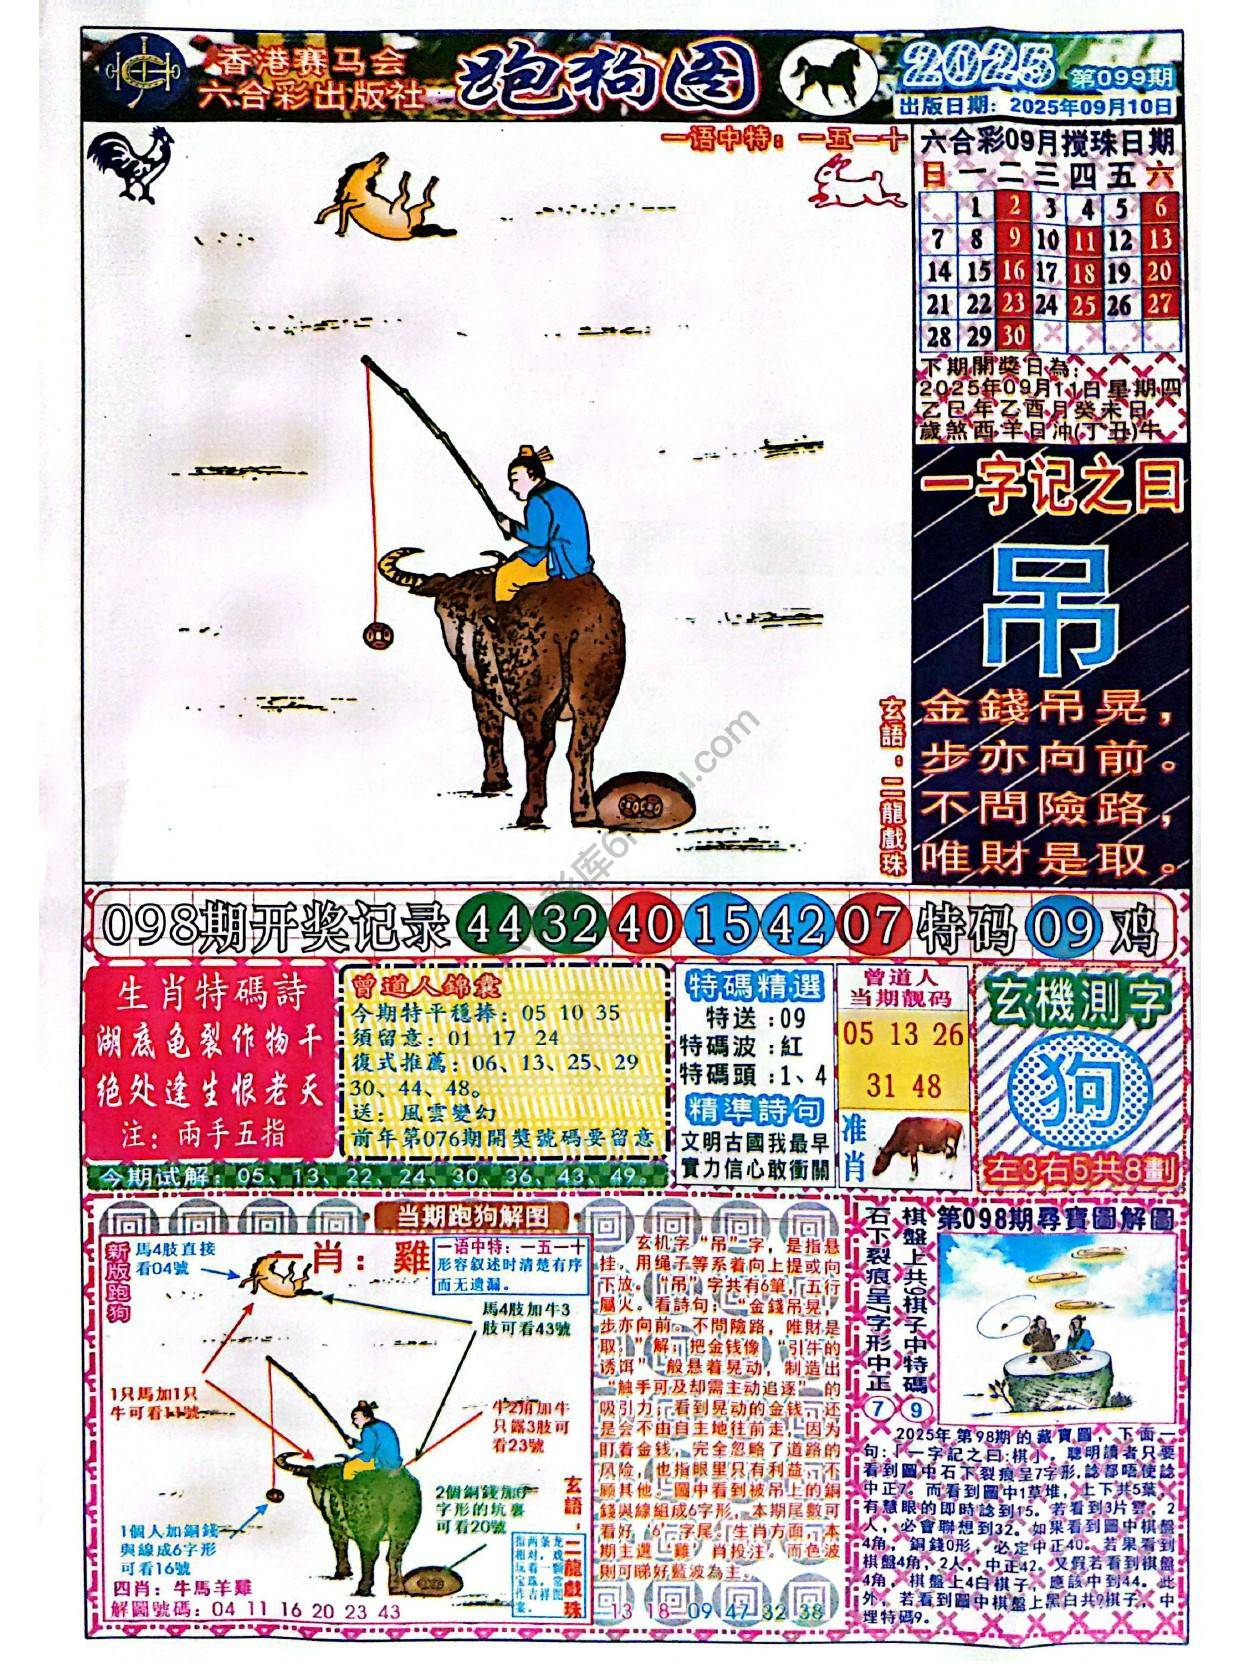 香港赛马会
六合彩出版社
跑狗图
2025
第099期
出版日期：2025年09月10日
一语中特：一五一十
六合彩09月搅珠日期
日 一 二 三 四 五 六
1 2 3 4 5 6
7 8 9 10 11 12 13
14 15 16 17 18 19 20
21 22 23 24 25 26 27
28 29 30
下期開獎日為：
2025年09月11日星期四
乙巳年乙酉月癸未日
歲煞西 羊日沖(丁丑)牛
一字记之曰
吊
金錢吊晃，
步亦向前。
不問險路，
唯財是取。
玄語：二龍戲珠
098期开奖记录 44 32 40 15 42 07 特码 09 鸡
生肖特碼詩
湖底龟裂作物干
绝处逢生恨老天
注：兩手五指
曾道人錦囊
今期特平穩捧：05 10 35
須留意：01 17 24
復式推薦：06、13、25、29
30、44、48。
送：風雲變幻
前年第076期開獎號碼要留意
今期试解：05、13、22、24、30、36、43、49。
特碼精選
特送：09
特碼波：紅
特碼頭：1、4
精準詩句
文明古國我最早
實力信心敢衝關
曾道人
当期靓码
05 13 26
31 48
准肖
玄機測字
狗
左3右5共8劃
当期跑狗解图
新版跑狗
馬4肢直接
看04號
一肖：雞
一语中特：一五一十
形容叙述时清楚有序
而无遗漏。
馬4肢加牛3
肢可看43號
1只馬加1只
牛可看11號
牛2角加牛
只露3肢可
看23號
2個銅錢加一
字形的坑裏
可看20號
1個人加銅錢
與線成6字形
可看16號
玄語：二龍戲珠
四肖：牛馬羊雞
解圖號碼：04 11 16 20 23 43
玄机字“吊”字，是指悬
挂，用绳子等系着向上提或向
下放。“吊”字共有6筆，五行
屬火。看詩句：“金錢吊晃，
步亦向前。不問險路，唯財是
取。”解：把金钱像“引牛的
诱饵”般悬着晃动，制造出
“触手可及却需主动追逐”的
吸引力；看到晃动的金钱，还
是会不由自主地往前走，因为
盯着金钱，完全忽略了道路的
风险，也指眼里只有利益，不
顾其他。圖中看到被吊上的銅
錢與線組成6字形，本期尾數可
看好“6”字尾。生肖方面，本
期主選“雞”肖投注。而色波
則可睇好藍波為主。
13 18 09 47 32 38
石下裂痕呈7字形中正7
棋盤上共9棋子中特碼9
第098期尋寶圖解圖
2025年第98期的藏寶圖，下面一
句：「一字記之曰：棋」，聰明讀者只要
看到圖中石下裂痕呈7字形，諗都唔使諗
中正7。而看到圖中1草堆，上下共5葉，
有慧眼的即時諗到15。若看到3片雲，2
人，必會聯想到32。如果看到圖中棋盤
4角，銅錢0形，必定中正40。若果看到
棋盤4角，2人，中正42。又假若看到棋盤
4角，棋盤上4白棋子，應該中到44。此
外，若看到圖中棋盤上黑白共9棋子，中
埋特碼9。